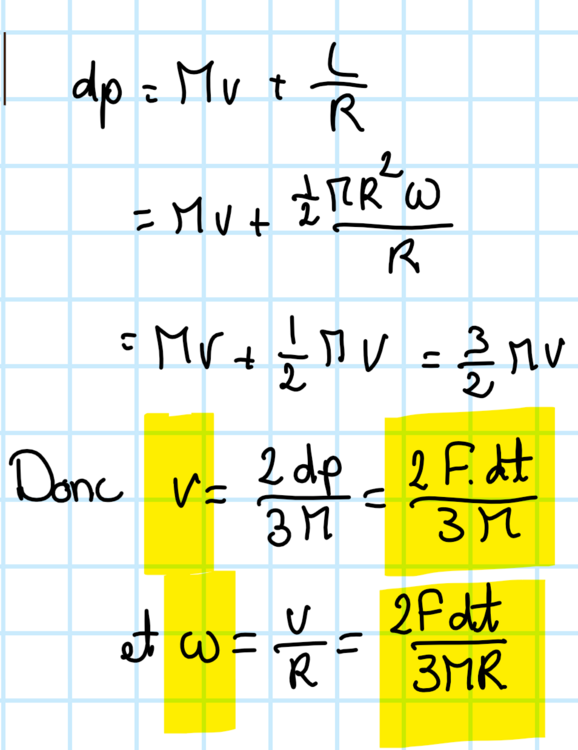 dp = Mv + L/R
= Mv + (1/2 MR² ω)/R
= Mv + 1/2 M V = 3/2 MV
Donc v = 2 dp/3M = 2 F.dt/3M
et ω = V/R = 2Fdt/3MR